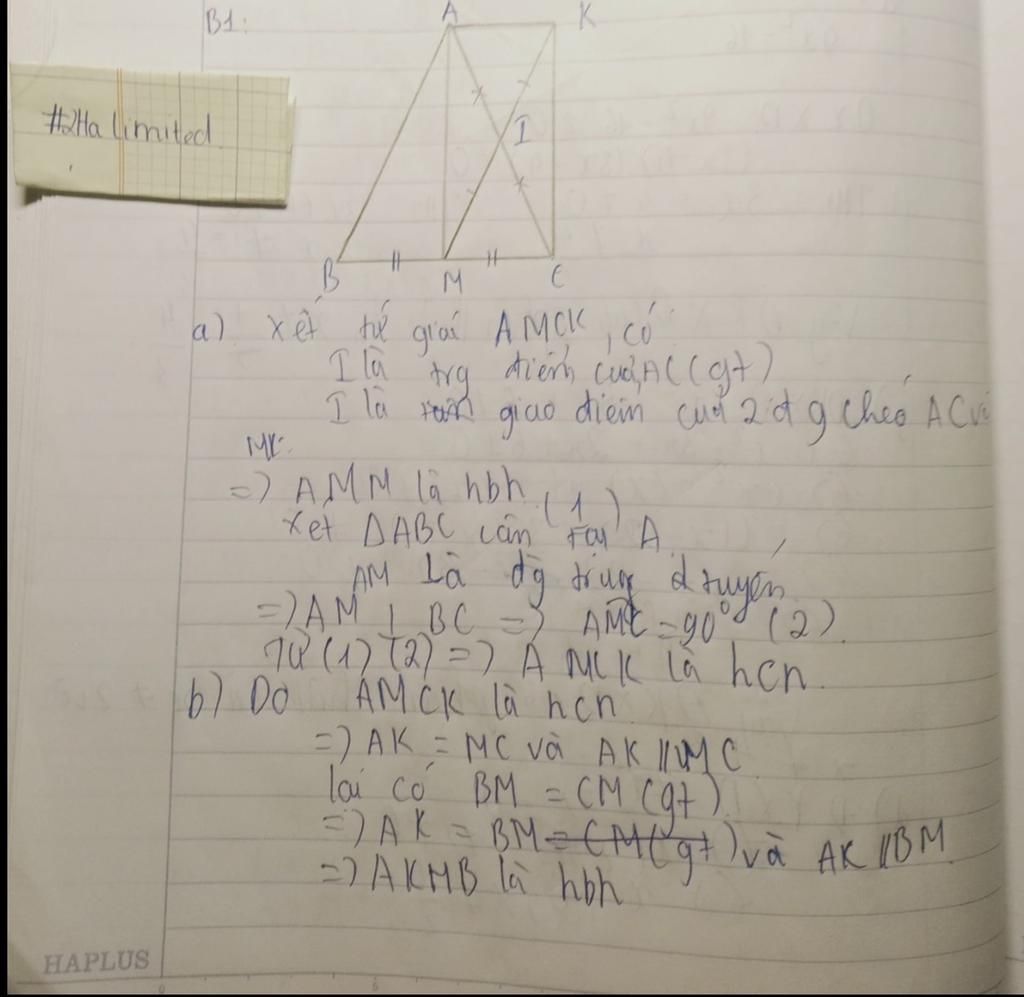 B1:
A K
#2Ha limited
I
B M C
a) Xét tứ giái AMCK, có
I là trg điểm của AC (gt)
I là giao điểm của 2 đg chéo AC và
MK.
=) AMM là hbh (1)
Xét ΔABC cân tại A
AM Là đg trung đ tuyến
=) AM ⊥ BC =) AMC = 90° (2).
Từ (1) (2) =) A MCK là hcn.
b) Do AMCK là hcn.
=) AK = MC và AK // MC
lại có BM = CM (gt)
=) AK = BM = CM (gt) và AK // BM.
=) AKMB là hbh
HAPLUS